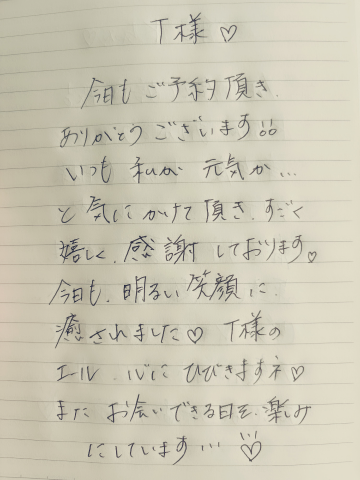 T様♡
今日も ご予約頂き、
ありがとうございます!!
いつも 私が 元気か…
と気にかけて頂き、すごく
嬉しく、感謝しております。
今日も、明るい笑顔に、
癒されました♡ T様の
エール 心にひびきますネ♡
また お会いできる日を、楽しみ
にしています…♡